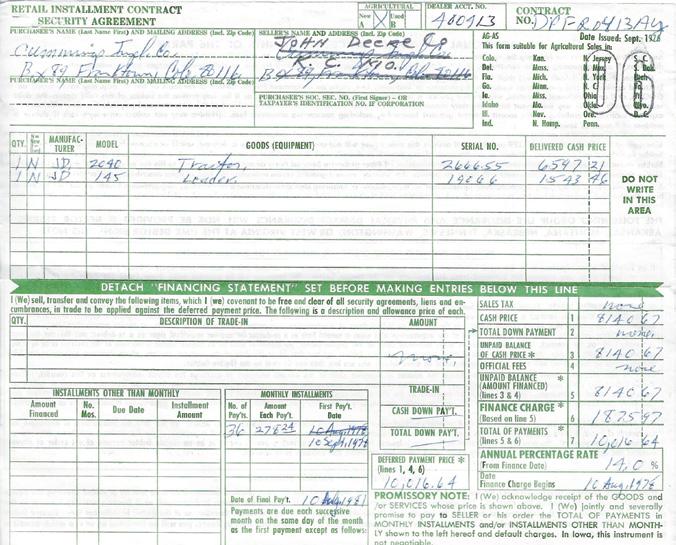 RETAIL INSTALLMENT CONTRACT
SECURITY AGREEMENT
AGRICULTURAL
New A X Used B
DEALER ACCT. NO.
CONTRACT
NO.
PURCHASER'S NAME (Last Name First) AND MAILING ADDRESS (Incl. Zip Code)
Cummings Impl. Co.
Bx 89 Franktown, Colo 80116
PURCHASER'S NAME (Last Name First) AND MAILING ADDRESS (Incl. Zip Code)
SELLER'S NAME AND ADDRESS (Incl. Zip Code)
JOHN DEERE Co
PURCHASER'S SOC. SEC. NO. (First Signer) – OR
TAXPAYER'S IDENTIFICATION NO. IF CORPORATION
AG-AS Date Issued: Sept. 1976
This form suitable for Agricultural Sales in:
Colo. Kan. N. Jersey S. C.
Del. Mass. N. Mex. S. Dak.
Fla. Mich. N. York
Ga. Minn. N. C.
Ia. Miss. Ohio
Idaho Mo. Okla.
Ill. Nev. Ore. D. C.
Ind. N. Hamp. Penn.
06
QTY. MANUFAC-TURER MODEL GOODS (EQUIPMENT) SERIAL NO. DELIVERED CASH PRICE
1 N JD 2040 Tractor, 266655 6597 21
1 N JD 145 Loader. 1543 46
DO NOT
WRITE
IN THIS
AREA
DETACH "FINANCING STATEMENT" SET BEFORE MAKING ENTRIES BELOW THIS LINE
I (We) sell, transfer and convey the following items, which I (we) covenant to be free and clear of all security agreements, liens and en-
cumbrances, in trade to be applied against the deferred payment price. The following is a description and allowance price of each.
QTY. DESCRIPTION OF TRADE-IN AMOUNT
none,
TRADE-IN
CASH DOWN PAY'T.
TOTAL DOWN PAY'T.
SALES TAX none
CASH PRICE 1 8140 67
TOTAL DOWN PAYMENT 2 none,
UNPAID BALANCE
OF CASH PRICE * 3 8140 67
OFFICIAL FEES 4 none
UNPAID BALANCE *
(AMOUNT FINANCED)
(lines 3 & 4) 5 8140 67
FINANCE CHARGE *
(Based on line 5) 6 1875 97
TOTAL OF PAYMENTS *
(lines 5 & 6) 7 10,016 64
INSTALLMENTS OTHER THAN MONTHLY
Amount Financed No. Mos. Due Date Installment Amount
MONTHLY INSTALLMENTS
No. of Pay'ts. Amount Each Pay't. First Pay't. Date
36 278 24 10 Aug, 1978
10 Sept, 1978
Date of Final Pay't. 10 Aug, 1981
Payments are due each successive
month on the same day of the month
as the first payment except as follows:
DEFERRED PAYMENT PRICE *
(lines 1, 4, 6)
10,016.64
ANNUAL PERCENTAGE RATE
(From Finance Date) 14.0 %
Date
Finance Charge Begins 10 Aug, 1978
PROMISSORY NOTE: I (We) acknowledge receipt of the GOODS and
/or SERVICES whose price is shown above. I (We) jointly and severally
promise to pay to SELLER or his order the TOTAL OF PAYMENTS in
MONTHLY INSTALLMENTS and/or INSTALLMENTS OTHER THAN MONTH-
LY shown to the left hereof and default charges. In Iowa, this instrument is
not negotiable.